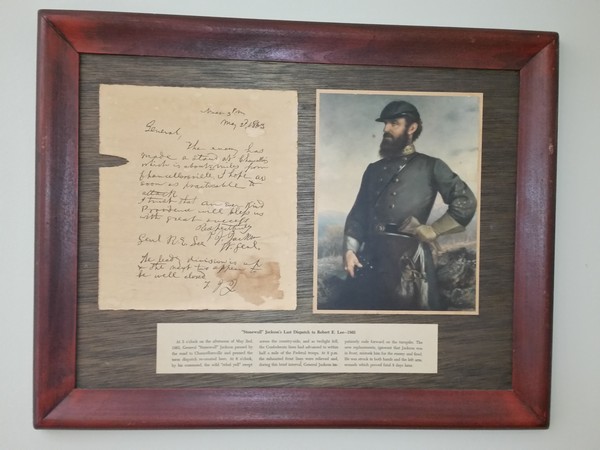 Near 3 P.M.
May 2d, 1863
General,
The enemy has
made a stand at Chancellor's
which is about 2 miles from
Chancellorsville. I hope as
soon as practicable to
attack.
I trust that an ever kind
Providence will bless us
with great success.
Respectfully
T. J. Jackson
Lt. Genl.
Genl. R. E. Lee
The leading division is up
& the next two appear to
be well closed.
T. J. J.
"Stonewall" Jackson's Last Dispatch to Robert E. Lee—1863
At 3 o'clock on the afternoon of May 2nd,
1863, General "Stonewall" Jackson paused by
the road to Chancellorsville and penned this
terse dispatch to General Lee. At 6 o'clock,
by his command, the wild "rebel yell" swept
across the country-side, and as twilight fell,
the Confederate lines had advanced to within
half a mile of the Federal troops. At 9 p.m.
the exhausted front lines were relieved and,
during this brief interval, General Jackson im-
patiently rode forward on the turnpike. The
new replacements, ignorant that Jackson was
in front, mistook him for the enemy and fired.
He was struck in both hands and the left arm,
wounds which proved fatal 8 days later.